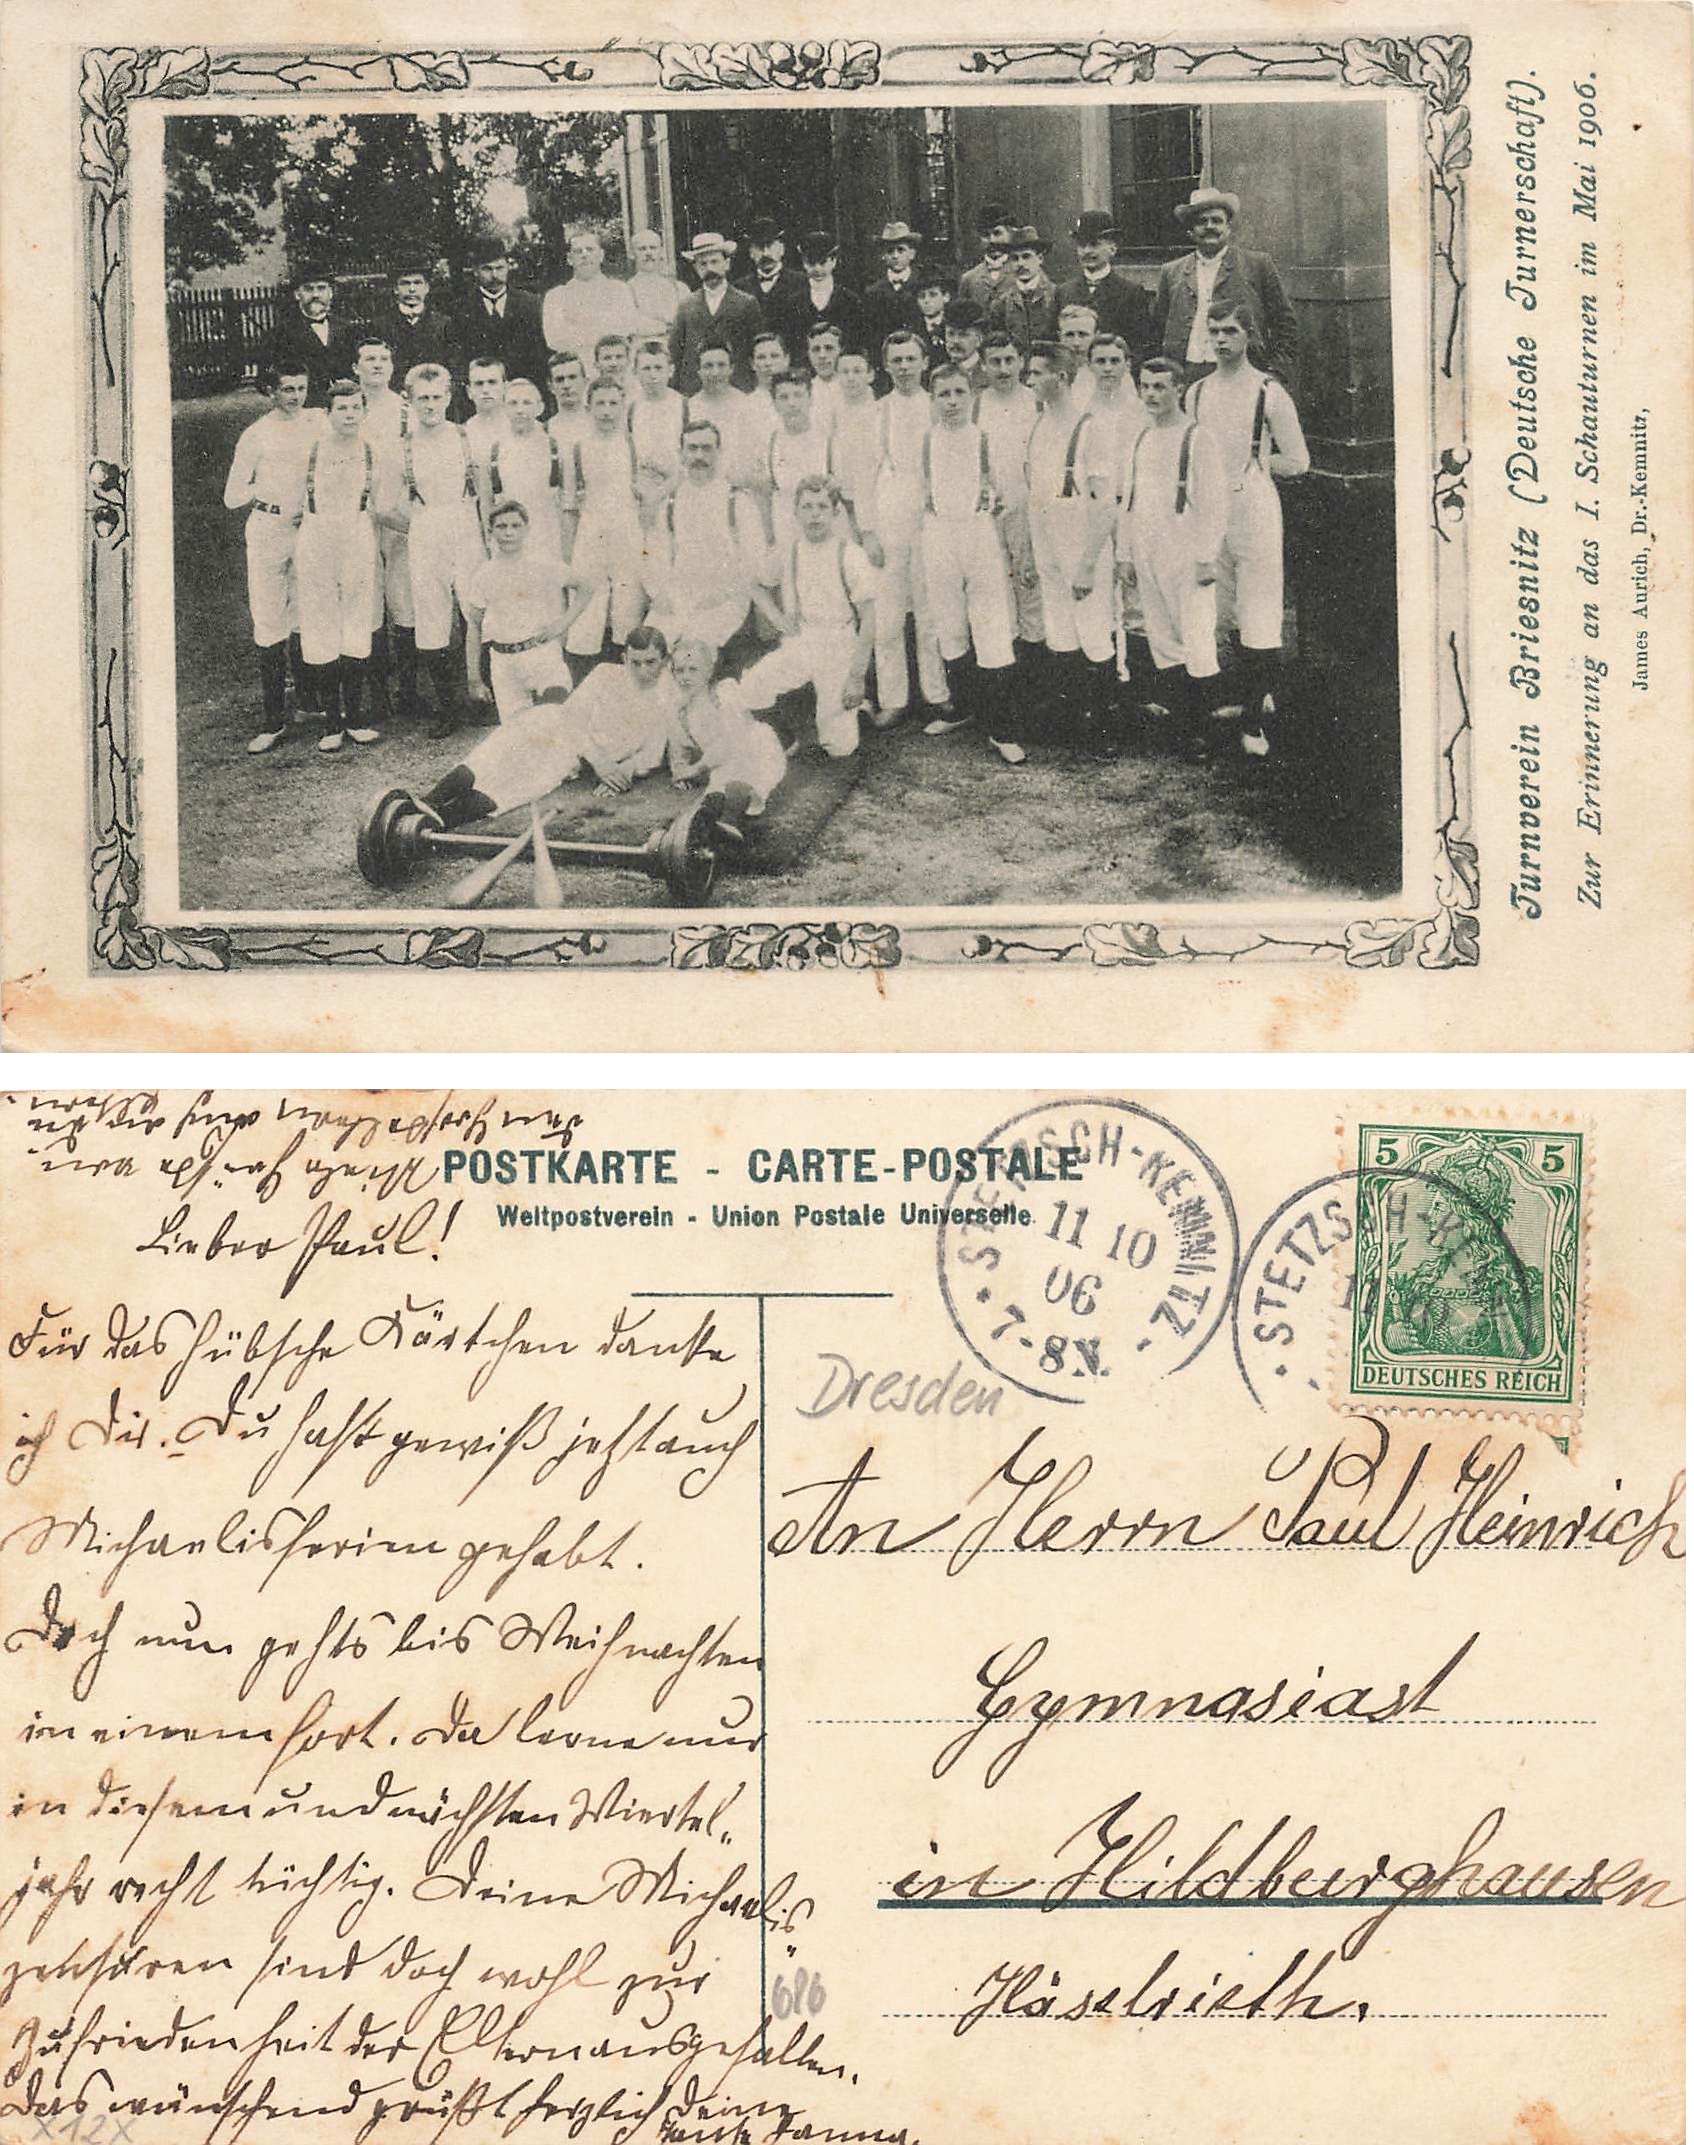 Turnverein Briesnitz (Deutsche Turnerschaft).
Zur Erinnerung an das I. Schauturnen im Mai 1906.
James Aurich, Dr.-Kemnitz,
POSTKARTE - CARTE-POSTALE
Weltpostverein - Union Postale Universelle
STETZSCH-KEMNITZ
11 10
06
7-8 N.
STETZSCH-K
5 5
DEUTSCHES REICH
Dresden
Lieber Paul!
Für das hübsche Kärtchen danke
ich Dir. Du hast gewiß jetzt auch
Michaelisferien gehabt.
Doch nun gehts bis Weihnachten
in einem fort. Da lerne nur
in diesem und nächsten Viertel-
jahr recht tüchtig. Deine Michaelis-
zensuren sind doch wohl zur
Zufriedenheit der Eltern ausgefallen.
Das wünschend grüßt herzlich Deine
Tante Hanna.
Viele Grüße von
dem auch an die
Eltern.
An Herrn Paul Heinrich
Gymnasiast
in Hildburghausen
Häselrieth.
686
X12X